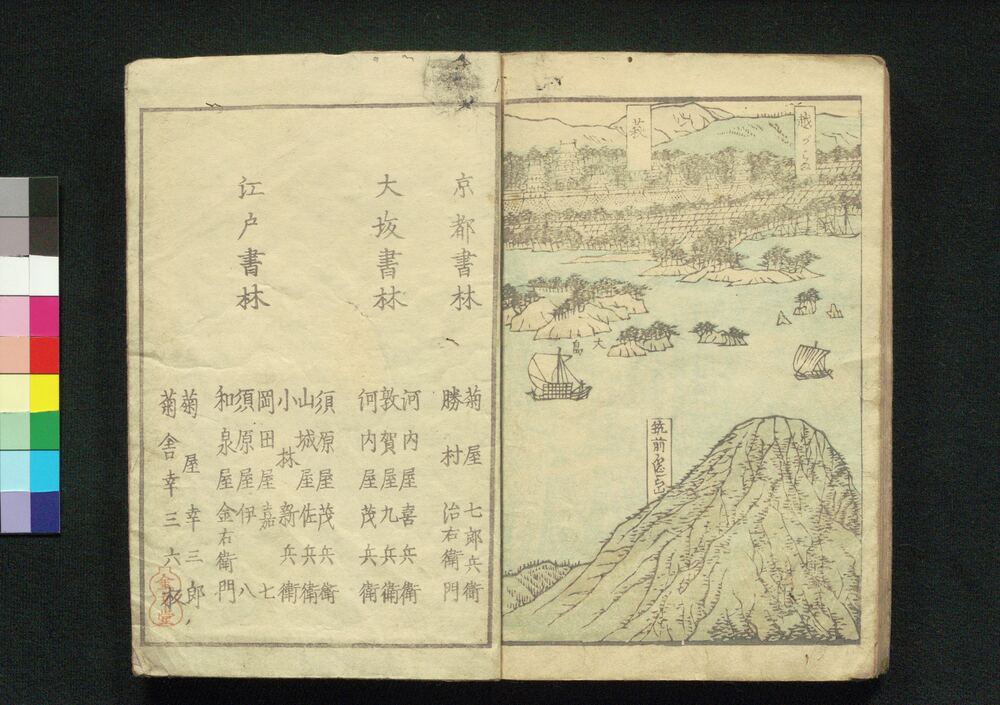 萩
大島
筑前
京都書林
菊屋七郎兵衛
勝村治右衛門
大坂書林
河内屋喜兵衛
敦賀屋九兵衛
河内屋茂兵衛
江戸書林
須原屋茂兵衛
山城屋佐兵衛
小林新兵衛
岡田屋嘉七
須原屋伊八
和泉屋金右衛門
菊屋幸三郎
菊舎幸三六